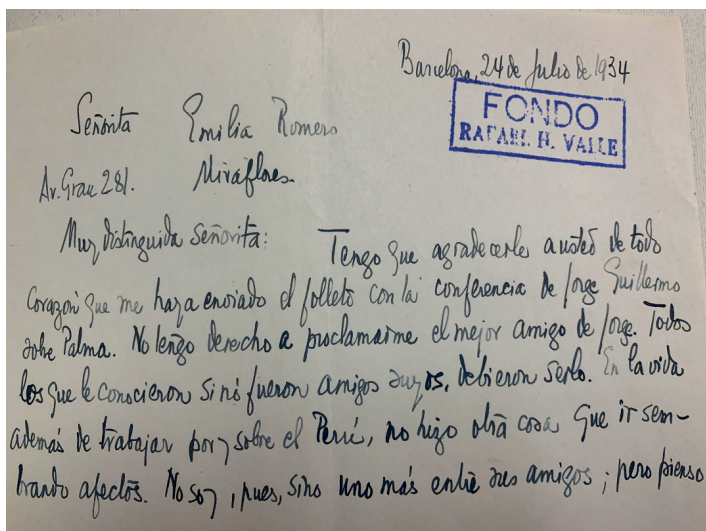 Barcelona, 24 de Julio de 1934
FONDO
RAFAEL H. VALLE
Señorita Emilia Romero
Av. Grau 281. Miraflores.
Muy distinguida Señorita: Tengo que agradecerle a usted de todo
corazón que me haya enviado el folleto con la conferencia de Jorge Guillermo
sobre Palma. No tengo derecho a proclamarme el mejor amigo de Jorge. Todos
los que le conocieron si nó fueron amigos suyos, debieron serlo. En la vida
además de trabajar por y sobre el Perú, no hizo otra cosa que ir sem-
brando afectos. No soy, pues, sino uno más entre sus amigos; pero pienso